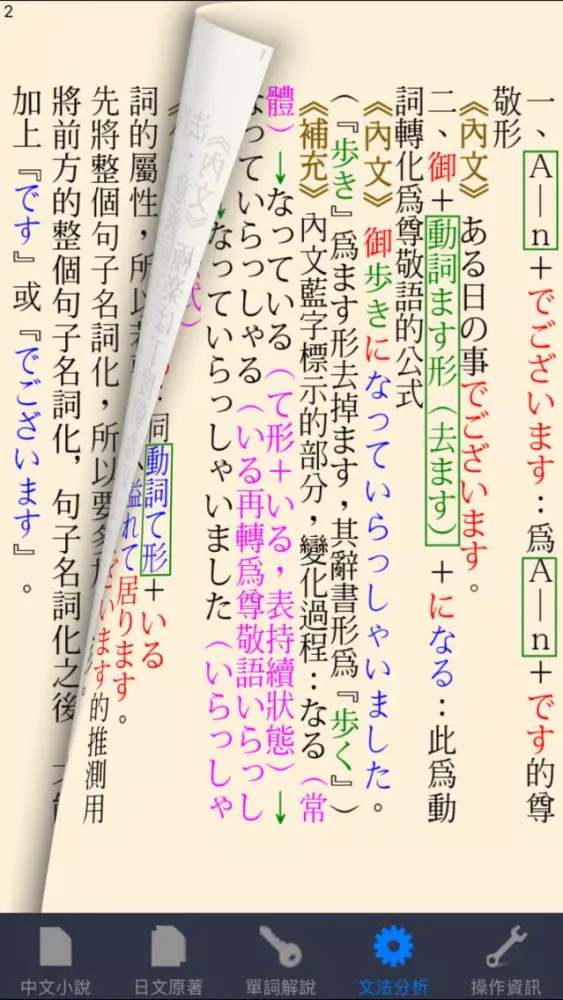 2
一、A—n＋でございます：爲A—n＋です的尊
敬形
《內文》ある日の事でございます。
二、御＋動詞ます形（去ます）＋になる：此爲動
詞轉化爲尊敬語的公式
《內文》御歩きになっていらっしゃいました。
（『歩き』爲ます形去掉ます，其辭書形爲『歩く』）
《補充》內文藍字標示的部分，變化過程：なる（常
體）↓なっている（て形＋いる，表持續狀態）↓
なっていらっしゃる（いる再轉爲尊敬語いらっし
↓なっていらっしゃいました（いらっしゃ
動詞て形＋いる
溢れて居ります。
詞的屬性，所以
ざいます的推測用
先將整個句子名詞化，所以要
將前方的整個句子名詞化，句子名詞化之後
加上『です』或『でございます』。
中文小說
日文原著
單詞解說
文法分析
操作資訊